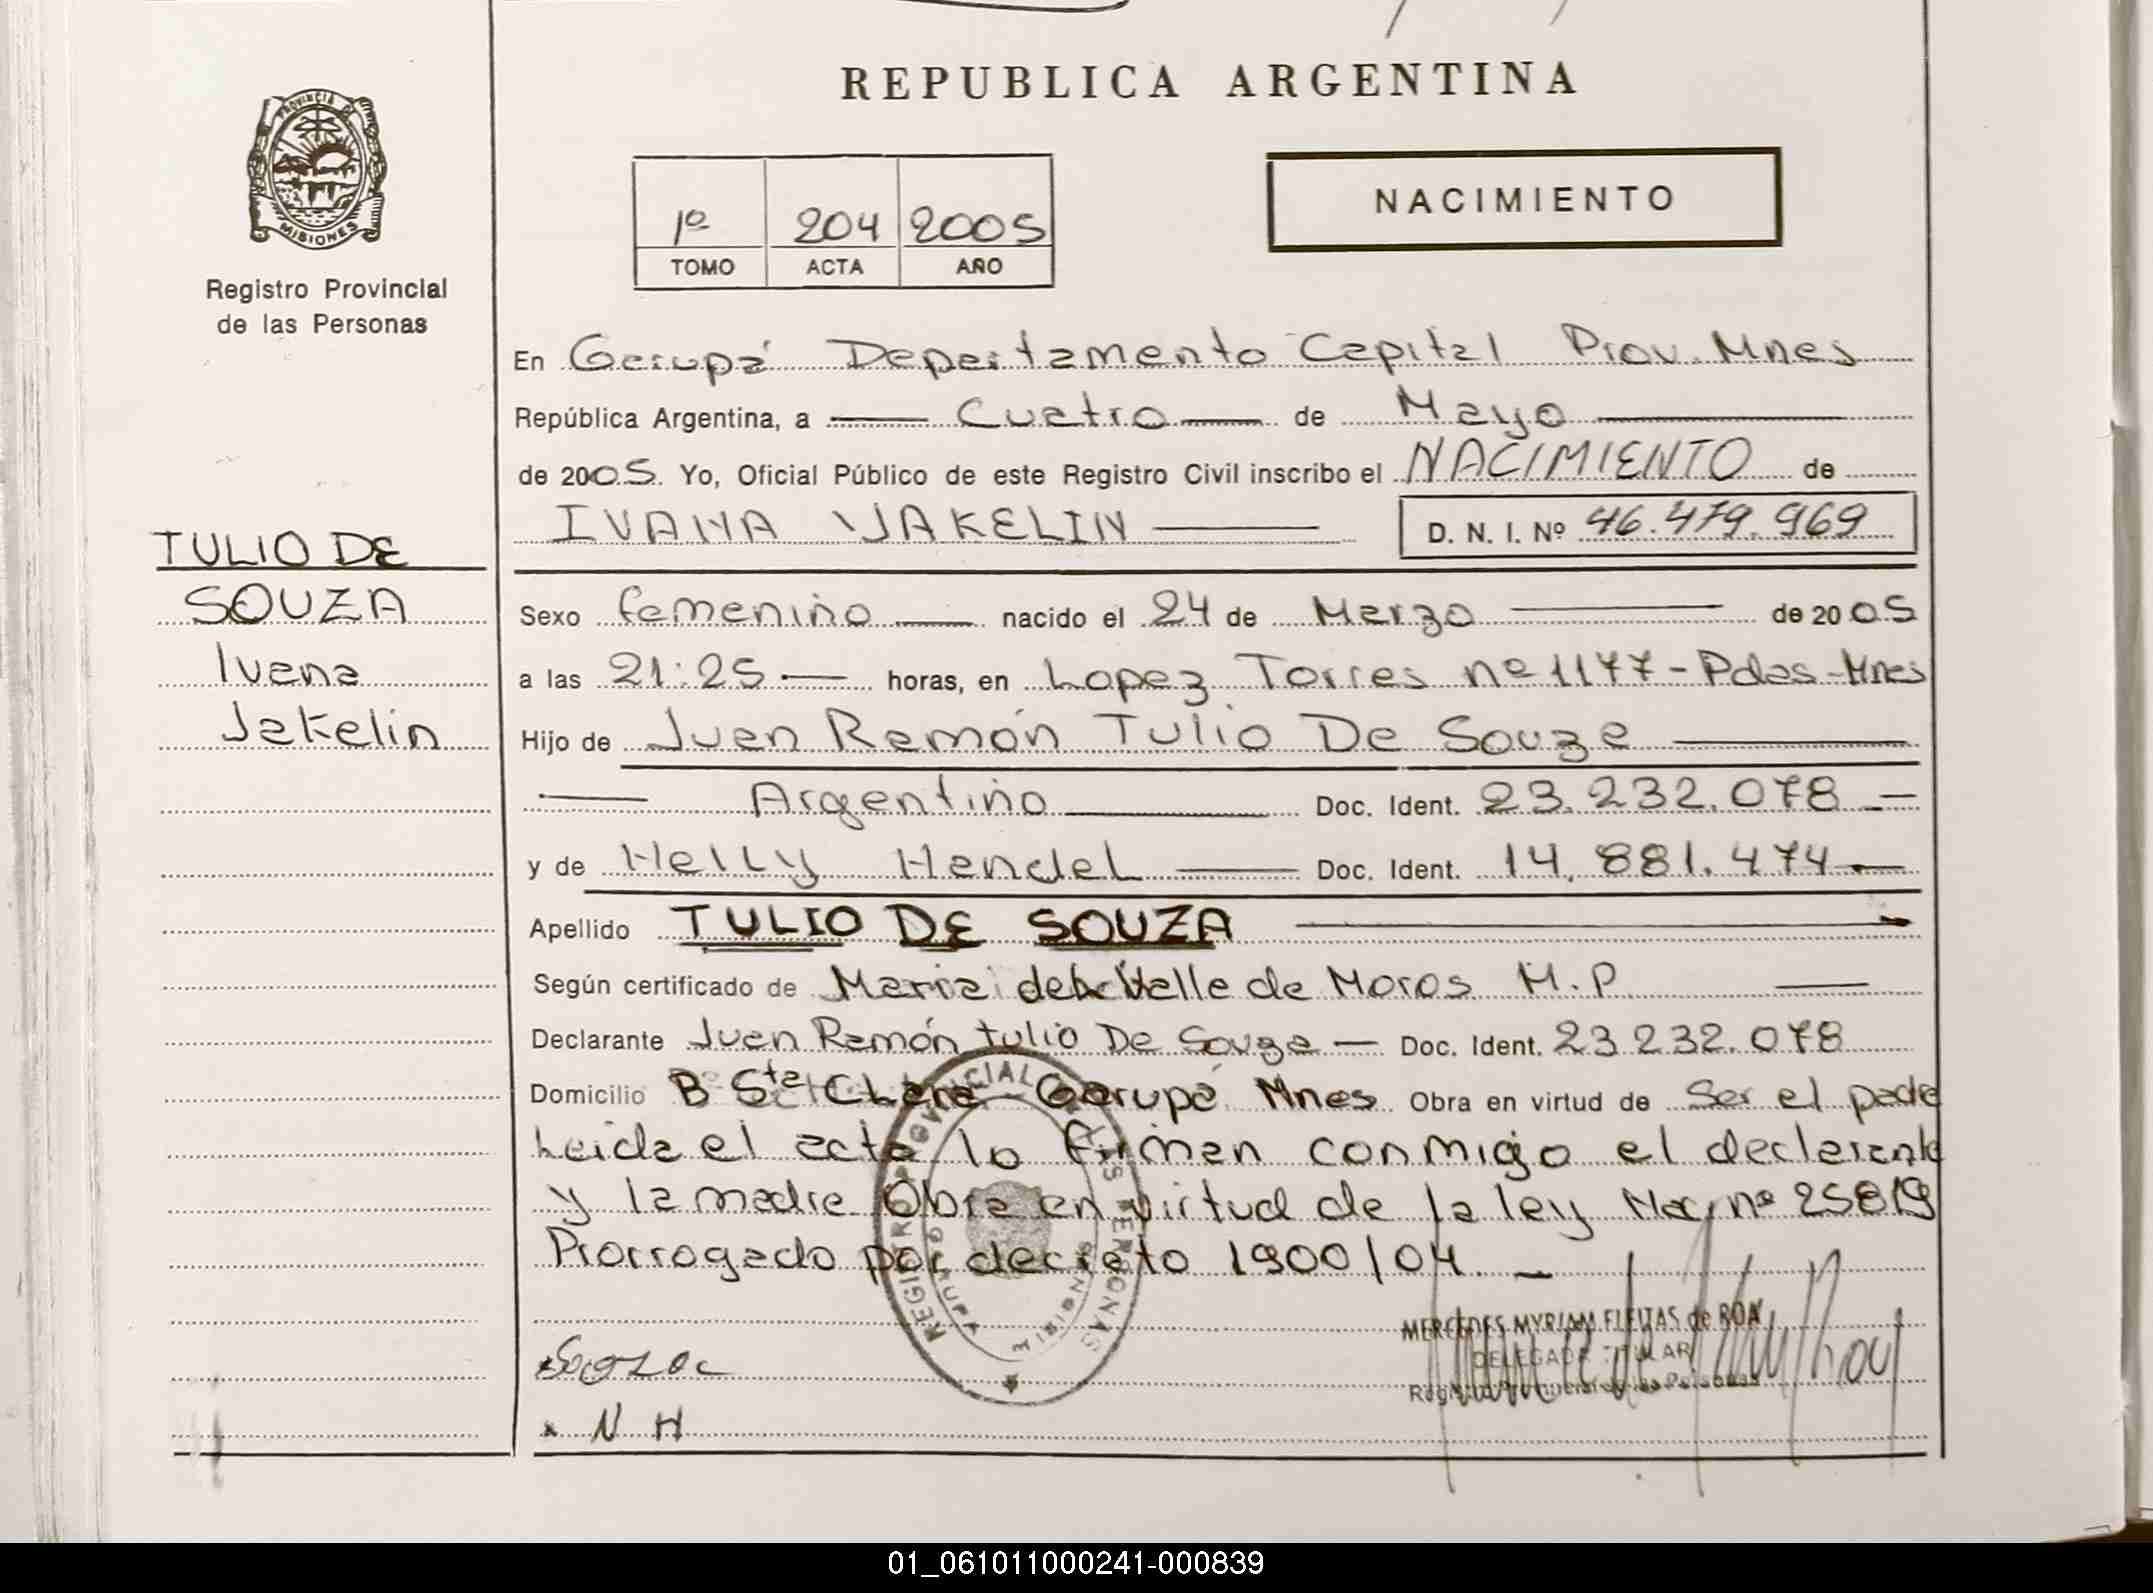 REPUBLICA ARGENTINA
PROVINCIA DE
MISIONES
Registro Provincial
de las Personas
1º 204 2005
TOMO ACTA AÑO
NACIMIENTO
En Garupá Departamento Capital Prov. Mnes
República Argentina, a Cuatro de Mayo
de 2005. Yo, Oficial Público de este Registro Civil inscribo el NACIMIENTO de
IVANA JAKELIN D. N. I. Nº 46.479.969
TULIO DE
SOUZA
Ivana
Jakelin
Sexo femenino nacido el 24 de Marzo de 2005
a las 21:25 horas, en Lopez Torres nº 1177 - Pdas - Mnes
Hijo de Juan Ramón Tulio De Souza
Argentino Doc. Ident. 23.232.078
y de Nelly Hendel Doc. Ident. 14.881.474
Apellido TULIO DE SOUZA
Según certificado de Maria del Valle de Moros M.P
Declarante Juan Ramón Tulio De Souza Doc. Ident. 23 232.078
Domicilio Bº Sta Clara Garupá Mnes Obra en virtud de Ser el padre
Leida el acta lo firman conmigo el declarante
y la madre Obra en virtud de la ley Nac. nº 25819
Prorrogado por decreto 1900/04
REGISTRO PROVINCIAL DE LAS PERSONAS
GARUPA MISIONES
MERCEDES MYRIAM FLEITAS de ROA
DELEGADA TITULAR
Registro Provincial de las Personas
x N H
01_061011000241-000839